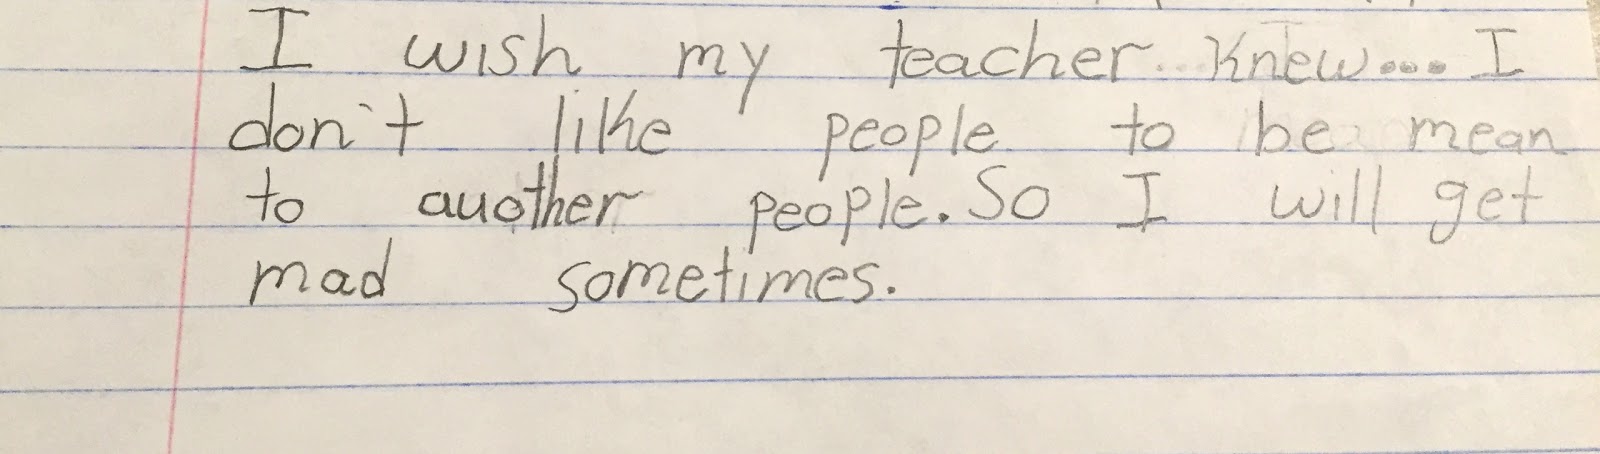 I wish my teacher knew... I
don't like people to be mean
to auother people. So I will get
mad sometimes.